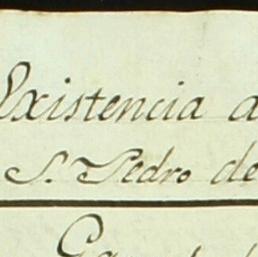 Existencia a
S. Pedro de